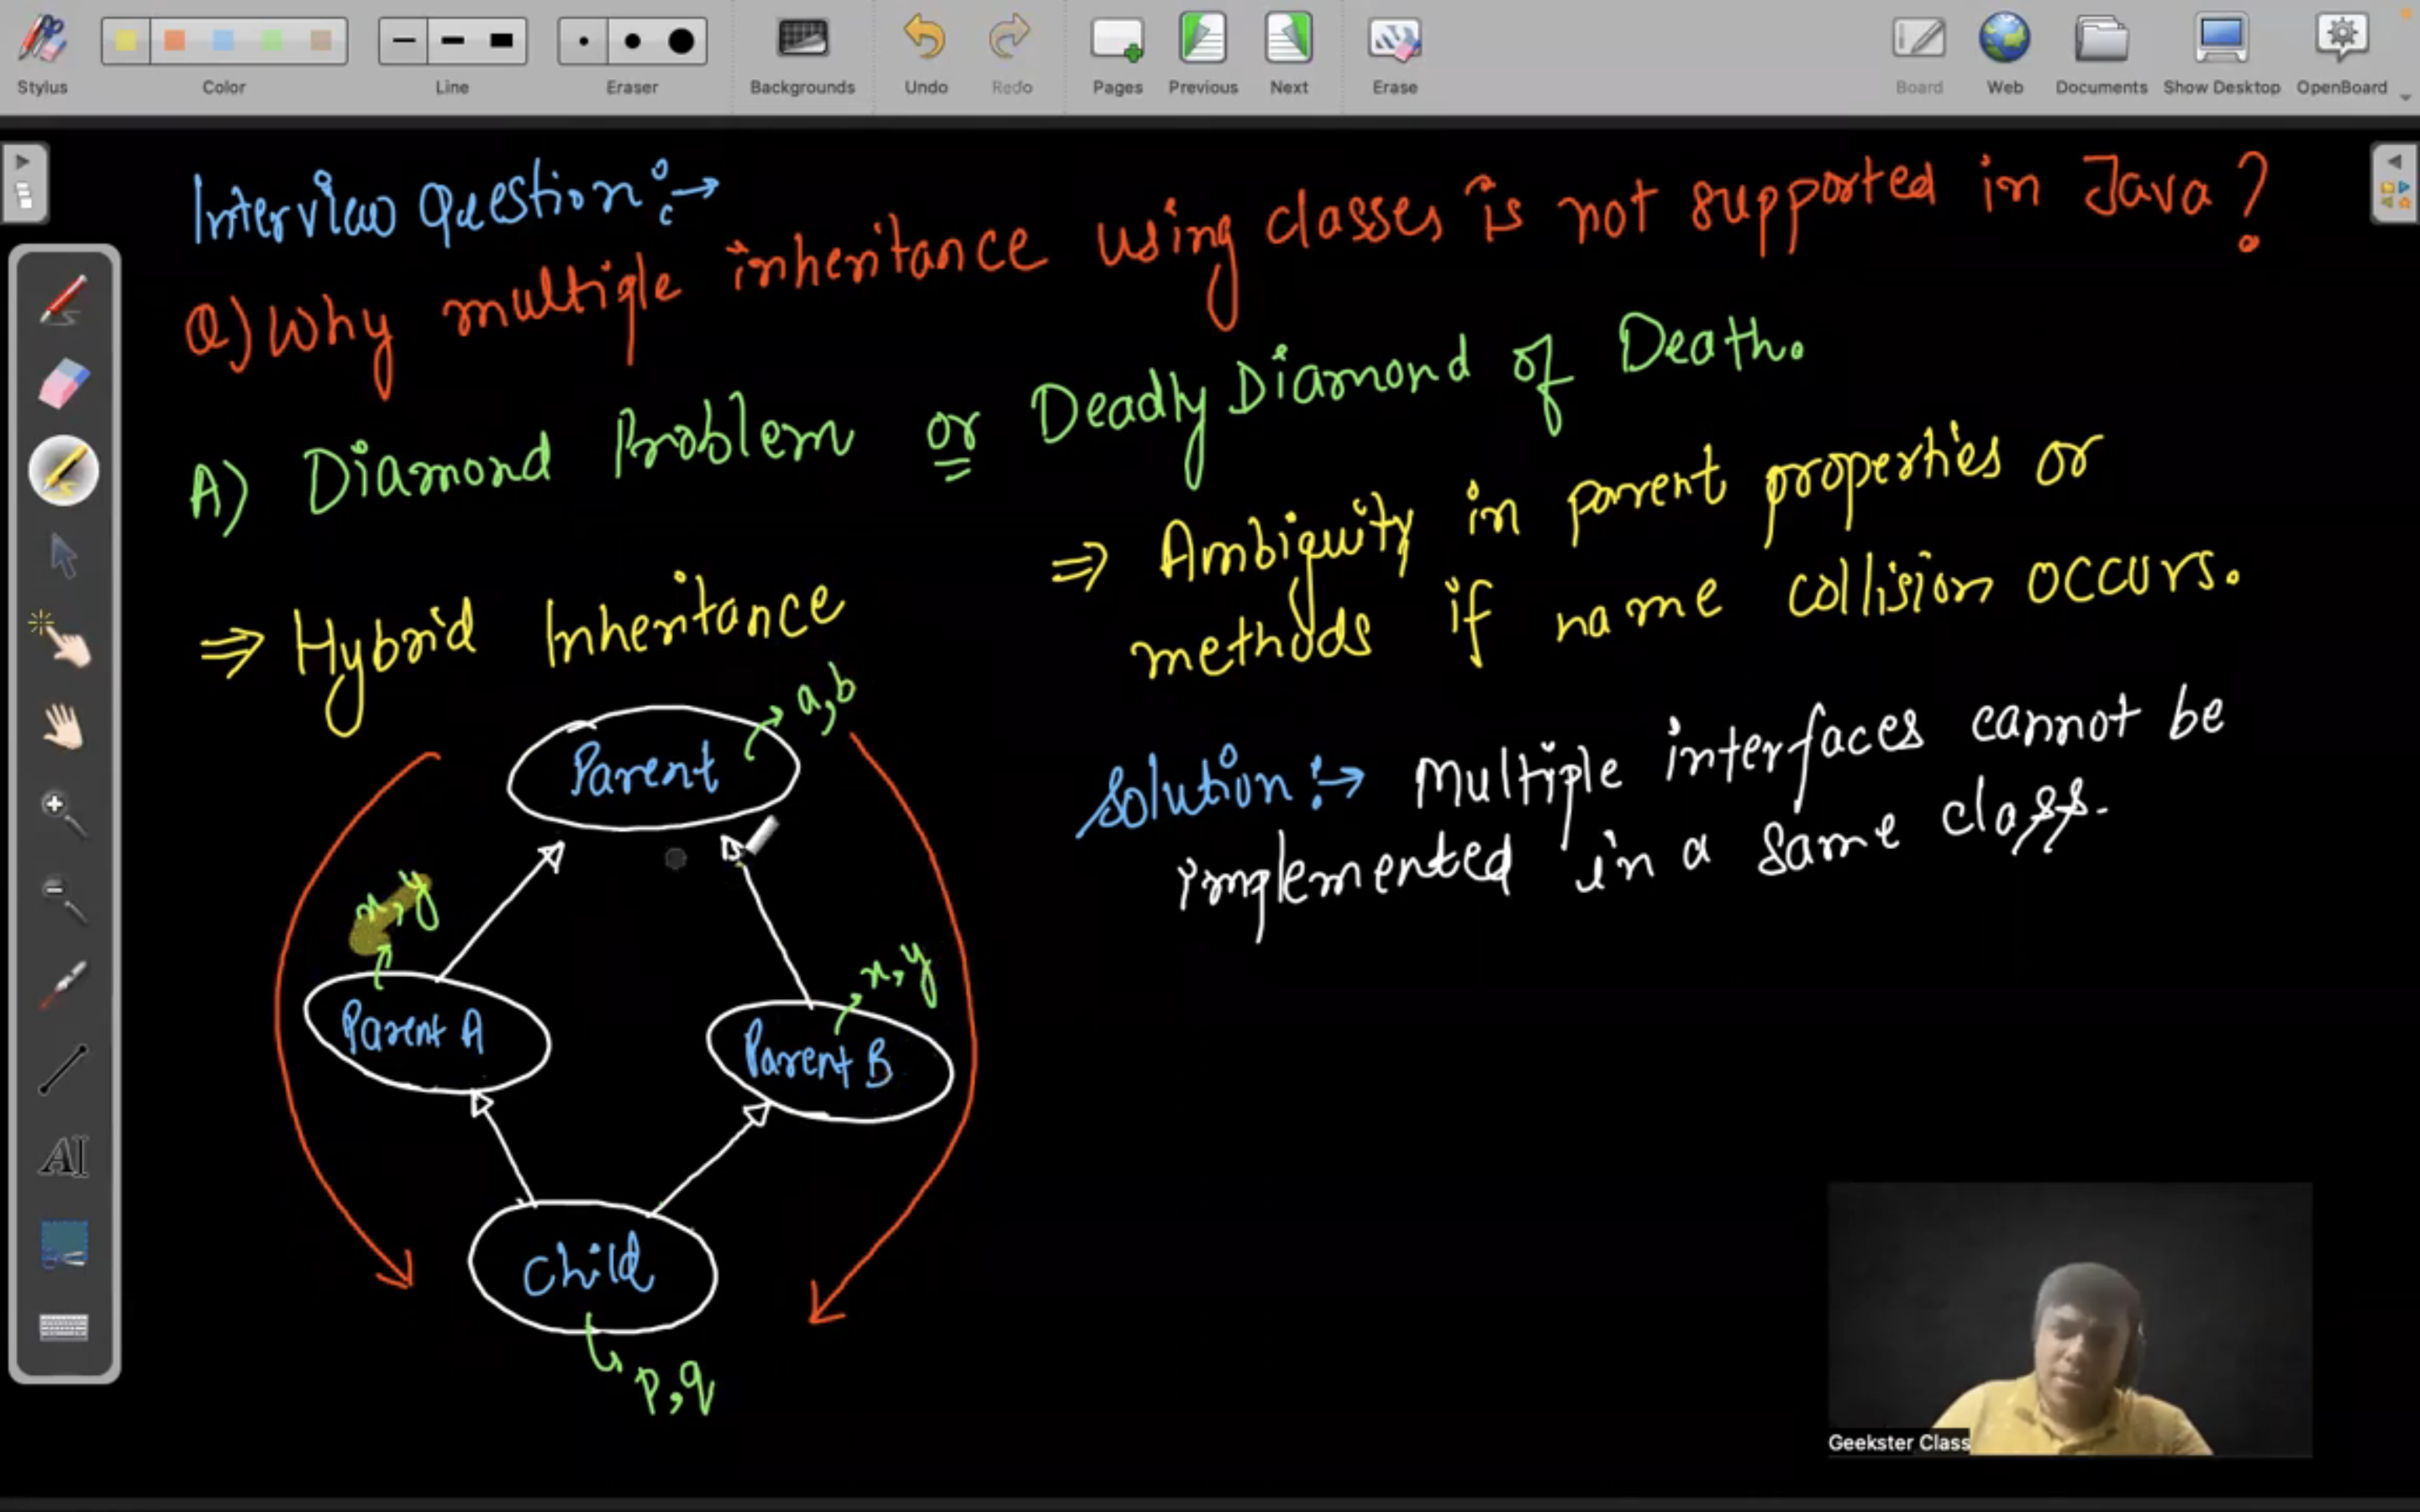 Stylus
Color
Line
Eraser
Backgrounds
Undo
Redo
Pages
Previous
Next
Erase
Board
Web
Documents
Show Desktop
OpenBoard
Interview Question :→
Q) Why multiple inheritance using classes is not supported in Java?
A) Diamond Problem or Deadly Diamond of Death.
⇒ Hybrid Inheritance
⇒ Ambiguity in parent properties or
methods if name collision occurs.
Solution :→ Multiple interfaces cannot be
implemented in a same class.
a,b
Parent
x,y
x,y
Parent A
Parent B
Child
p,q
AI
Geekster Class